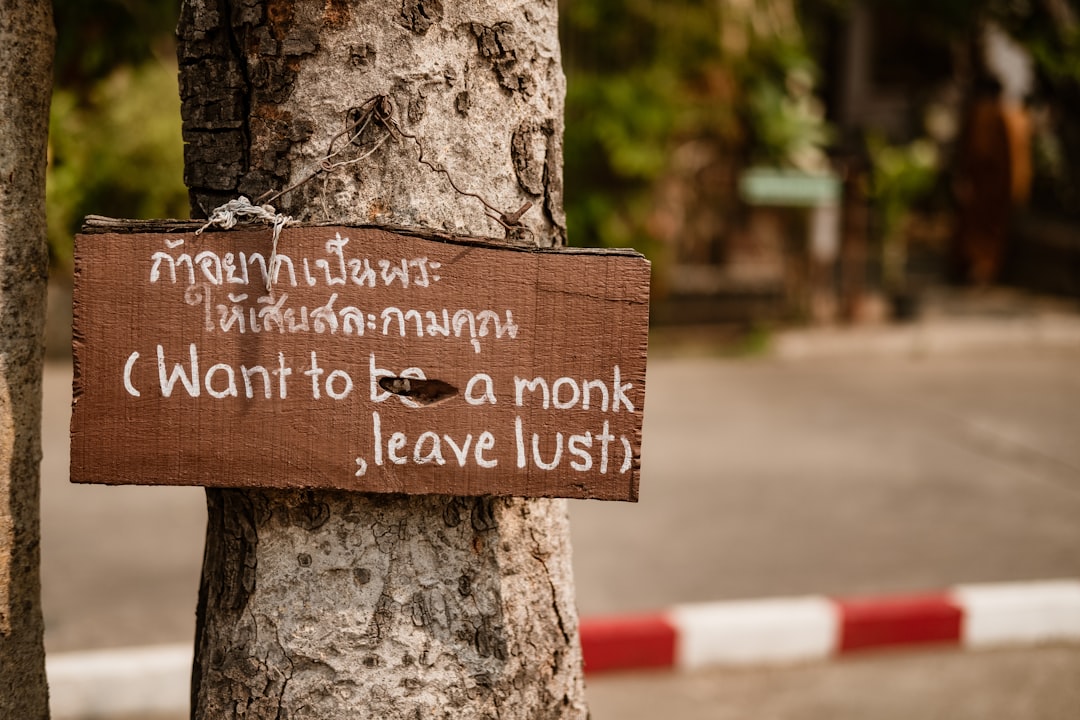 ถ้าอยากเป็นพระ
ให้เสียสละกามคุณ
(Want to be a monk
,leave lust)